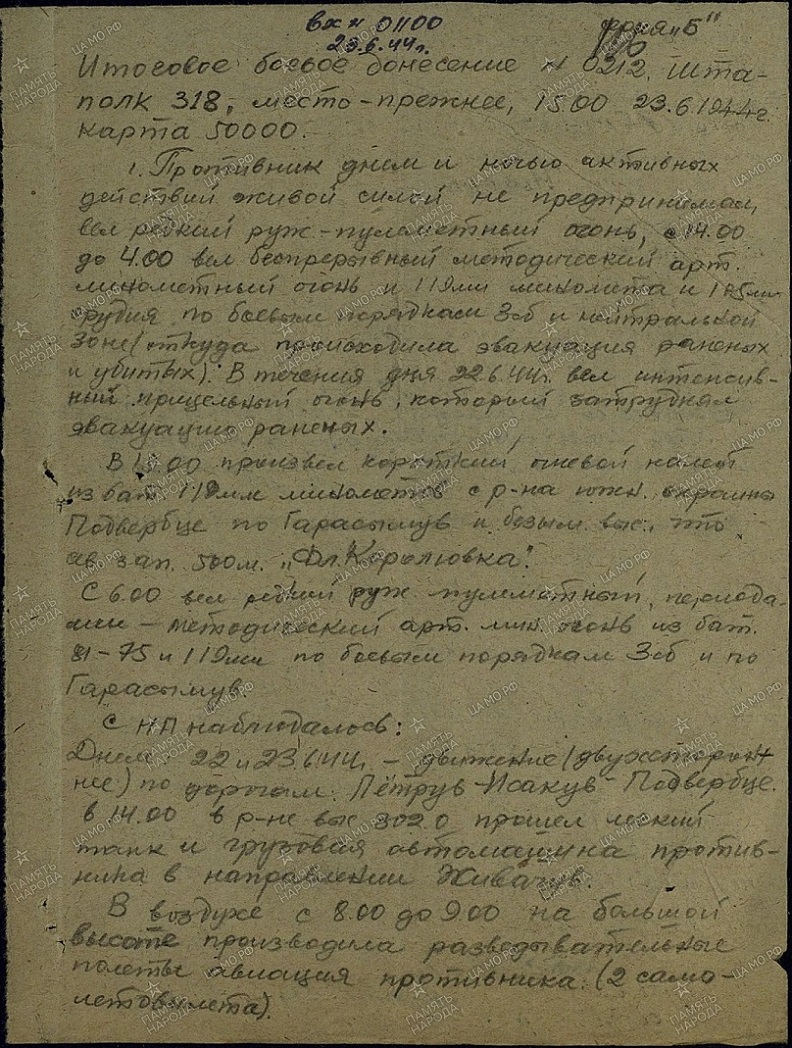 вх № 01100
23.6.44г.
серия „Б"
Итоговое боевое донесение № 0212. Шта-
полк 318, место-прежнее, 15.00 23.6.1944г.
карта 50000.
1. Противник днем и ночью активных
действий живой силой не предпринимал,
вел редкий руж-пулеметный огонь, с 14.00
до 4.00 вел беспрерывный методический арт.
минометный огонь и 119мм миномета и 105мм
орудия по боевым порядкам 3сб и нейтральной
зоне (откуда происходила эвакуация раненых
и убитых). В течения дня 22.6.44г. вел интенсив-
ный прицельный огонь, который затруднял
эвакуацию раненых.
В 15.00 произвел короткий огневой налет
из бат. 119мм минометов с р-на южн. окраины
Подвербце по Гарасымув и безым. выс., что
св. зап. 500м. „Фл. Королювка".
С 6.00 вел редкий руж. пулеметный, периода-
ми - методический арт. мин. огонь из бат.
81-75 и 119мм по боевым порядкам 3сб и по
Гарасымув.
С НП наблюдалось:
Днем 22 и 23.6.44г. - движение (двухсторон-
нее) по дорогам: Петрув-Исакув-Подвербце.
в 14.00 в р-не выс. 302.0 прошел легкий
танк и грузовая автомашина против-
ника в направлении Живачув.
В воздухе с 8.00 до 9.00 на большой
высоте производила разведывательные
полеты авиация противника. (2 само-
летовылета).